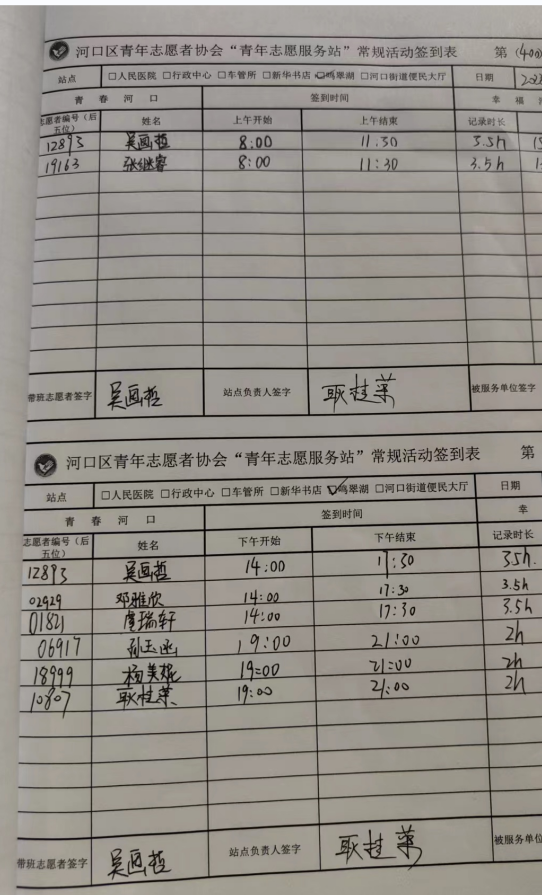 河口区青年志愿者协会“青年志愿服务站”常规活动签到表 第(400
站点 □人民医院 □行政中心 □车管所 □新华书店 ☑鸣翠湖 □河口街道便民大厅 日期
青春河口 签到时间 幸福
志愿者编号（后五位） 姓名 上午开始 上午结束 记录时长
12893 吴画哲 8:00 11.30 3.5h
19163 张继睿 8:00 11:30 3.5h
带班志愿者签字 吴画哲 站点负责人签字 耿桂荣 被服务单位签字
河口区青年志愿者协会“青年志愿服务站”常规活动签到表 第
站点 □人民医院 □行政中心 □车管所 □新华书店 ☑鸣翠湖 □河口街道便民大厅 日期
青春河口 签到时间 幸
志愿者编号（后五位） 姓名 下午开始 下午结束 记录时长
12893 吴画哲 14:00 17:30 3.5h.
02929 邓雅欣 14:00 17:30 3.5h
01821 瑞轩 14:00 17:30 3.5h
06917 孙玉函 19:00 21:00 2h
18999 杨美琨 19:00 21:00 2h
10807 耿桂荣 19:00 21:00 2h
带班志愿者签字 吴画哲 站点负责人签字 耿桂荣 被服务单位